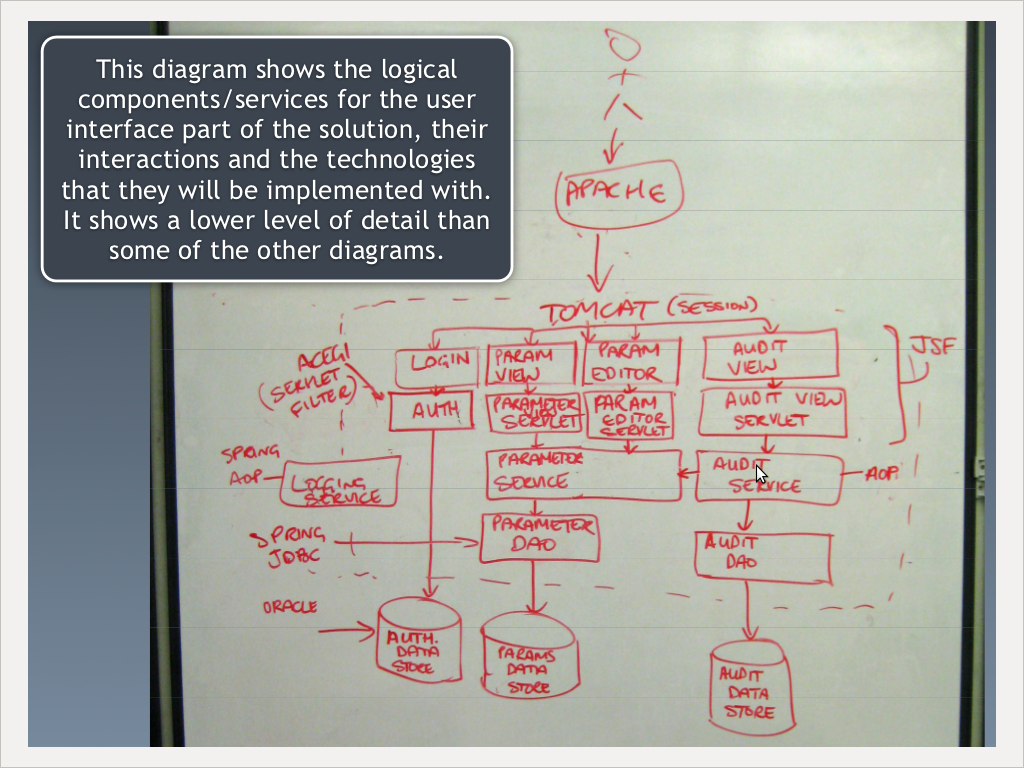 This diagram shows the logical
components/services for the user
interface part of the solution, their
interactions and the technologies
that they will be implemented with.
It shows a lower level of detail than
some of the other diagrams.
APACHE
TOMCAT (SESSION)
ACEGI
(SERVLET
FILTER)
LOGIN
PARAM
VIEW
PARAM
EDITOR
AUDIT
VIEW
JSF
AUTH
PARAMETER
SERVLET
PARAM
EDITOR
SERVLET
AUDIT VIEW
SERVLET
SPRING
AOP
LOGGING
SERVICE
PARAMETER
SERVICE
AUDIT
SERVICE
AOP
SPRING
JDBC
PARAMETER
DAO
AUDIT
DAO
ORACLE
AUTH.
DATA
STORE
PARAMS
DATA
STORE
AUDIT
DATA
STORE